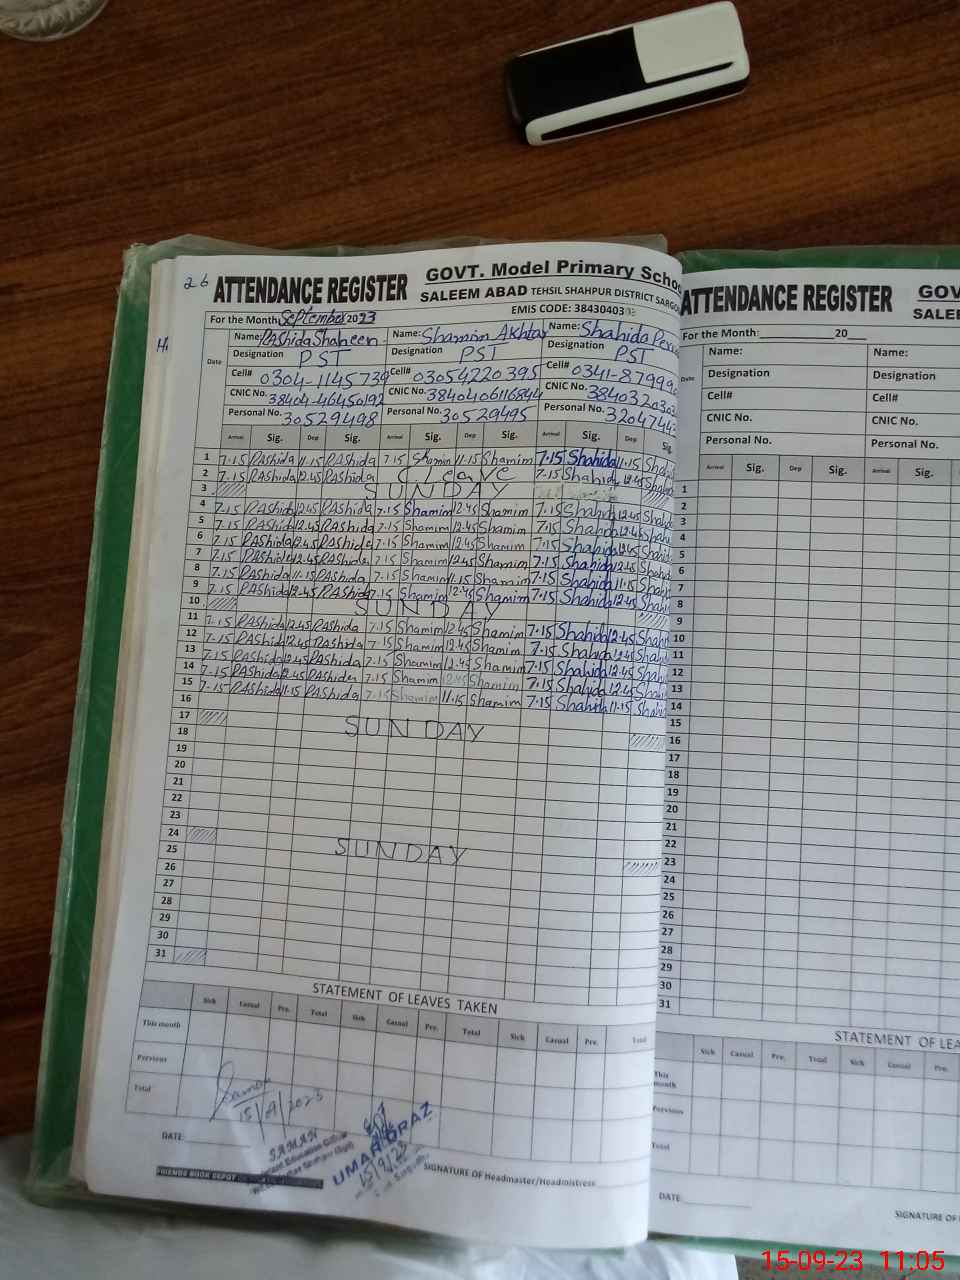 26
ATTENDANCE REGISTER
GOVT. Model Primary Schoo
SALEEM ABAD TEHSIL SHAHPUR DISTRICT SARGO
For the Month September 2023
EMIS CODE: 38430403
Date
Name: RAshida Shaheen Name: Shamim Akhtar Name: Shahida
Designation PST Designation PST Designation PST
Cell# 0304-1145739 Cell# 03054220395 Cell# 0341-87999
CNIC No. 38404-4645019 CNIC No. 3840406116844 CNIC No. 384032030
Personal No. 30529498 Personal No. 30529495 Personal No. 3204744
Arrival Sig. Dep Sig. Arrival Sig. Dep Sig. Arrival Sig. Dep Sig.
1 7.15 RAshida 11.15 RAshida 7.15 Shamim 11.15 Shamim 7.15 Shahida 11.15 Shahi
2 7.15 RAshida 12.45 RAshida C.Leave 7.15 Shahida 12.45 Shahi
3 SUNDAY
4 7.15 RAshida 12.45 RAshida 7.15 Shamim 12.45 Shamim 7.15 Shahida 12.45 Shahi
5 7.15 RAshida 12.45 RAshida 7.15 Shamim 12.45 Shamim 7.15 Shahida 12.45 Shahi
6 7.15 RAshida 12.45 RAshida 7.15 Shamim 12.45 Shamim 7.15 Shahida 12.45 Shahi
7 7.15 RAshida 12.45 RAshida 7.15 Shamim 12.45 Shamim 7.15 Shahida 12.45 Shahi
8 7.15 RAshida 11.15 RAshida 7.15 Shamim 11.15 Shamim 7.15 Shahida 11.15 Shahi
9 7.15 RAshida 12.45 RAshida 7.15 Shamim 12.45 Shamim 7.15 Shahida 12.45 Shahi
10 SUNDAY
11 7.15 RAshida 12.45 RAshida 7.15 Shamim 12.45 Shamim 7.15 Shahida 12.45 Shahi
12 7.15 RAshida 12.45 RAshida 7.15 Shamim 12.45 Shamim 7.15 Shahida 12.45 Shahi
13 7.15 RAshida 12.45 RAshida 7.15 Shamim 12.45 Shamim 7.15 Shahida 12.45 Shahi
14 7.15 RAshida 12.45 RAshida 7.15 Shamim 12.45 Shamim 7.15 Shahida 12.45 Shahi
15 7.15 RAshida 11.15 RAshida 7.15 Shamim 11.15 Shamim 7.15 Shahida 11.15 Shahi
16
17 SUNDAY
18
19
20
21
22
23
24 SUNDAY
25
26
27
28
29
30
31
STATEMENT OF LEAVES TAKEN
Sick Casual Pre. Total Sick Casual Pre. Total Sick Casual Pre. Total
This month
Pervious
Total
15/9/2023
DATE:
SAMAN
UMAR DRAZ
15/9/23
FRIENDS BOOK DEPOT
SIGNATURE OF Headmaster/Headmistress
ATTENDANCE REGISTER
GOV
SALEE
For the Month: 20
Date
Name: Name:
Designation Designation
Cell# Cell#
CNIC No. CNIC No.
Personal No. Personal No.
Arrival Sig. Dep Sig. Arrival Sig.
1
2
3
4
5
6
7
8
9
10
11
12
13
14
15
16
17
18
19
20
21
22
23
24
25
26
27
28
29
30
31
STATEMENT OF LEA
Sick Casual Pre. Total Sick Casual Pre.
This month
Pervious
Total
DATE:
SIGNATURE OF
15-09-23 11:05